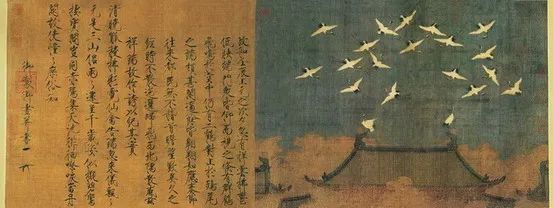 政和壬辰上元之次夕忽有祥雲拂鬱
低映端門眾皆仰而視之倏有群鶴
飛鳴於空中仍有二鶴對止於鴟尾
之端頗甚閒適餘皆翱翔如應奏節
往來都民無不稽首瞻望歎異久之
經時不散迤邐歸飛西北隅散感茲
祥瑞故作詩以紀其實
清曉觚稜拂彩霓仙禽告瑞忽來儀飄〻
元是三山侶兩〻還呈千歲姿似擬碧鸞
棲寶閣豈同赤雁集天池徘徊嘹唳當丹
闕故使憧〻庶俗知
御製御畫並書